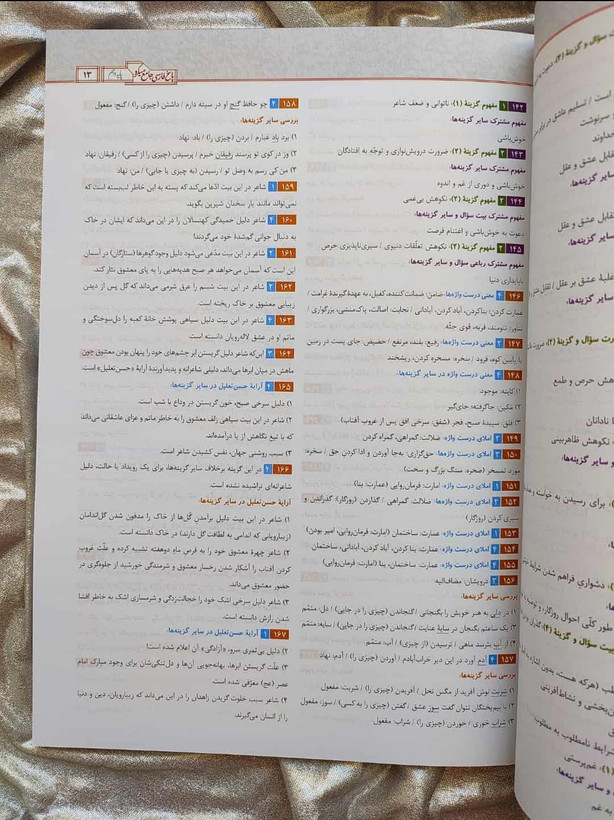 ۱۳
۱۴۲ ۱ مفهوم گزینهٔ (۱): ناتوانی و ضعف شاعر
مفهوم مشترک سایر گزینه‌ها:
خوش‌باشی
۱۴۳ ۲ مفهوم گزینهٔ (۲): ضرورت درویش‌نوازی و توجّه به افتادگان
مفهوم مشترک سایر گزینه‌ها:
خوش‌باشی و دوری از غم و اندوه
۱۴۴ ۲ مفهوم گزینهٔ (۲): نکوهش بی‌غمی
مفهوم مشترک بیت سؤال و سایر گزینه‌ها:
دعوت به خوش‌باشی و اغتنام فرصت
۱۴۵ ۲ مفهوم گزینهٔ (۲): نکوهش تعلّقات دنیوی / سیری‌ناپذیری حرص
مفهوم مشترک رباعی سؤال و سایر گزینه‌ها:
ناپایداری دنیا
۱۴۶ ۴ معنی درست واژه‌ها: ضامن: ضمانت‌کننده، کفیل، به عهده‌گیرندهٔ غرامت /
عمارت کردن: بناکردن، آباد کردن، آبادانی / نجابت: اصالت، پاک‌منشی، بزرگواری /
تناور: تنومند، فربه، قوی جثّه
۱۴۷ ۲ معنی درست واژه‌ها: رفیع: بلند، مرتفع / حضیض: جای پست در زمین
یا پایین کوه، فرود / سخره: مسخره کردن، ریشخند
۱۴۸ ۴ معنی درست واژه در سایر گزینه‌ها:
۱) کاینه: موجود
۲) مکین: جاگرفته، جای‌گیر
۳) فلق: سپیدهٔ صبح، فجر (شفق: سرخی افق پس از غروب آفتاب)
۱۴۹ ۳ املای درست واژه: ضلالت: گمراهی، گمراه کردن
۱۵۰ ۳ املای درست واژه‌ها: حق‌گزاری: به‌جا آوردن و ادا کردن حق / سخره:
مورد تمسخر (صخره: سنگ بزرگ و سخت)
۱۵۱ ۱ املای درست واژه: امارت: فرمان‌روایی (عمارت: بنا)
۱۵۲ ۳ املای درست واژه‌ها: ضلالت: گمراهی / گذاردن (روزگار): گذراندن و
سپری کردن (روزگار)
۱۵۳ ۱ املای درست واژه: عمارت: ساختمان (امارت: فرمان‌روایی، امیر بودن)
۱۵۴ ۴ املای درست واژه: عمارت: بنا کردن، آباد کردن، آبادانی، ساختمان
۱۵۵ ۴ املای درست واژه: عمارت: ساختمان، بنا (امارت: فرمان‌روایی)
۱۵۶ ۳ درویشان: مضاف‌الیه
بررسی سایر گزینه‌ها:
۱) در دلی به هنر خویش را بگنجانی / گنجاندن (چیزی را در جایی) / دل: متمّم
۲) یک ساعتم بگنجان در سایهٔ عنایت / گنجاندن (چیزی را در جایی) / سایه: متمّم
۴) از آب بترسد ماهی / ترسیدن (از چیزی) / آب: متمّم
۱۵۷ ۴ آدم آورد در این دیر خراب‌آبادم / آوردن (چیزی را) / آدم: نهاد
بررسی سایر گزینه‌ها:
۱) شربت نوش آفرید از مگس نحل / آفریدن (چیزی را) / شربت: مفعول
۲) با نیم‌پختگان نتوان گفت سوز عشق / گفتن (چیزی را به کسی) / سوز: مفعول
۳) شراب خوری / خوردن (چیزی را) / شراب: مفعول
۱۵۸ ۴ چو حافظ گنج او در سینه دارم / داشتن (چیزی را) / گنج: مفعول
بررسی سایر گزینه‌ها:
۱) برد باد غبارم / بردن (چیزی را) / باد: نهاد
۲) وز در کوی تو پرسند رفیقان خبرم / پرسیدن (چیزی را از کسی) / رفیقان: نهاد
۳) من کی رسم به وصل تو / رسیدن (به چیزی یا جایی) / من: نهاد
۱۵۹ ۱ شاعر در این بیت ادّعا می‌کند که پسته به این خاطر لب‌بسته است که
نمی‌تواند مانند یار سخنان شیرین بگوید.
۱۶۰ ۴ شاعر دلیل خمیدگی کهنسالان را در این می‌داند که ایشان در خاک
به دنبال جوانی گم‌شدهٔ خود می‌گردند!
۱۶۱ ۴ شاعر در این بیت مدّعی می‌شود دلیل وجود گوهرها (ستارگان) در آسمان
این است که آسمان می‌خواهد هر صبح هدیه‌هایی را به پای معشوق نثار کند.
۱۶۲ ۲ شاعر در این بیت شبنم را عرق شرمی می‌داند که گل پس از دیدن
زیبایی معشوق بر خاک ریخته است.
۱۶۳ ۴ شاعر در این بیت دلیل سیاهی پوشش خانهٔ کعبه را دل‌سوختگی و
ماتم او در عشق لاله‌رویان دانسته است.
۱۶۴ ۳ این‌که شاعر دلیل گریستن ابر چشم‌های خود را پنهان بودن معشوق چون
ماهش در میان ابرها می‌داند، دلیلی شاعرانه و پدیدآورندهٔ آرایهٔ «حسن‌تعلیل» است.
۱۶۵ ۴ آرایهٔ حسن‌تعلیل در سایر گزینه‌ها:
۱) دلیل سرخی صبح، خون گریستن در وداع با شب است.
۲) شاعر در این بیت سیاهی زلف معشوق را به خاطر ماتم و عزای عاشقانی می‌داند
که با تیغ نگاهش از پا درآمده‌اند.
۳) سبب روشنی جهان، نفس کشیدن شاعر است.
۱۶۶ ۴ در این گزینه برخلاف سایر گزینه‌ها، برای یک رویداد یا حالت، دلیل
شاعرانه‌ای تراشیده نشده است
آرایهٔ حسن‌تعلیل در سایر گزینه‌ها:
۱) شاعر در این بیت دلیل برآمدن گُل‌ها از خاک را مدفون شدن گل‌اندامان
(زیبارویانی که اندامی به لطافت گل دارند) در خاک دانسته است.
۲) شاعر چهرهٔ معشوق خود را به قرص ماه دوهفته تشبیه کرده و علّت غروب
کردن آفتاب را آشکار شدن رخسار معشوق و شرمندگی خورشید از جلوه‌گری در
حضور معشوق می‌داند.
۳) شاعر دلیل سرخی اشک خود را خجالت‌زدگی و شرمساری اشک به خاطر افشا
شدن رازش دانسته است.
۱۶۷ ۱ آرایهٔ حسن‌تعلیل در سایر گزینه‌ها:
۲) دلیل بی‌ثمری سرو، «آزادگی» آن اعلام شده است!
۳) علّت گریستن ابرها، بهانه‌جویی آن‌ها و دل‌تنگی‌شان برای وجود مبارک امام
عصر (عج) معرّفی شده است.
۴) شاعر سبب خلوت گزیدن زاهدان را در این می‌داند که زیبارویان، دین و دنیا
را از انسان می‌گیرند.